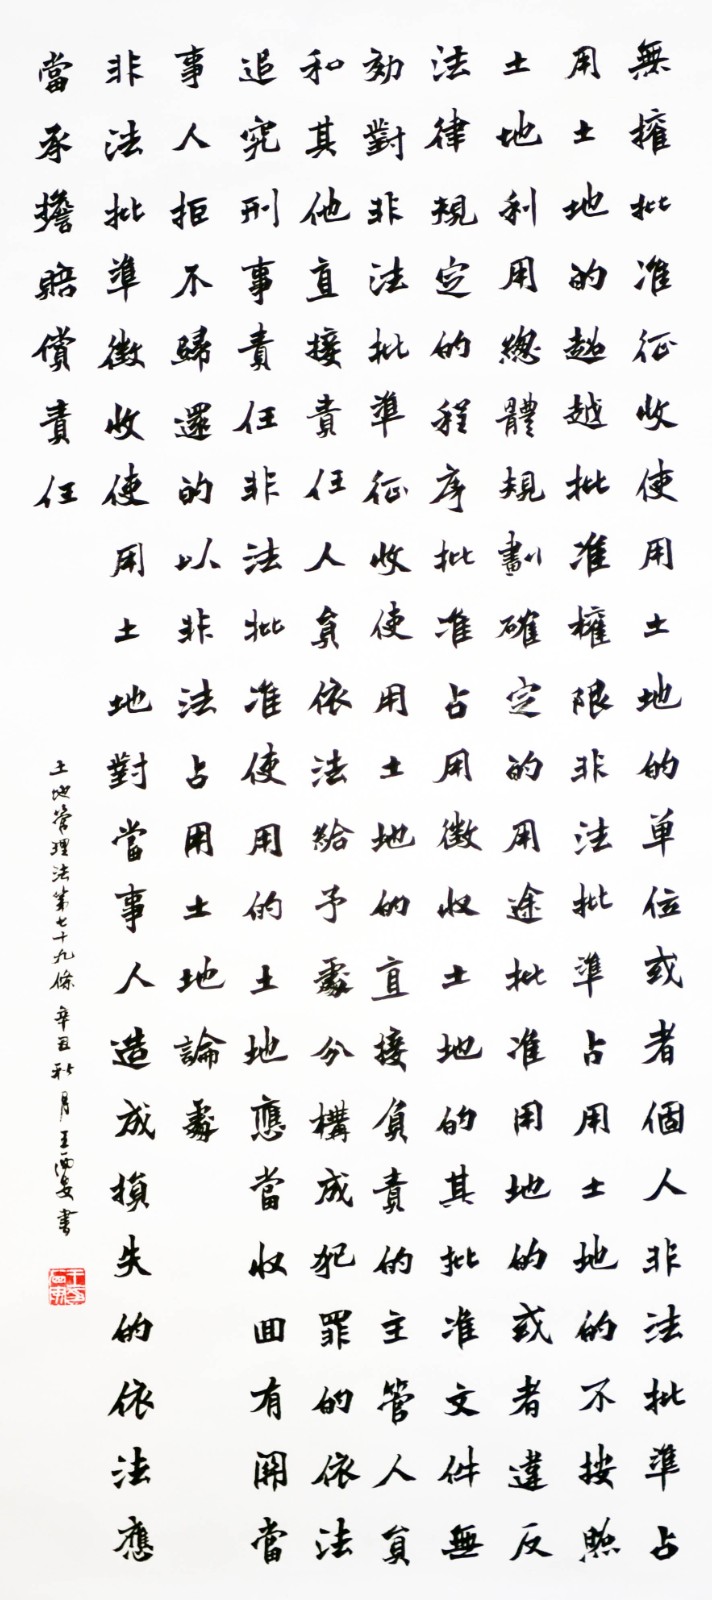 無權批准征收使用土地的单位或者個人非法批準占
用土地的超越批准權限非法批準占用土地的不按照
土地利用總體規劃確定的用途批准用地的或者違反
法律規定的程序批准占用徵收土地的其批准文件無
効對非法批準征收使用土地的直接負責的主管人員
和其他直接責任人員依法給予處分構成犯罪的依法
追究刑事責任非法批准使用的土地應當收囬有関當
事人拒不歸還的以非法占用土地論處
非法批準徵收使用土地對當事人造成損失的依法應
當承擔賠償責任
土地管理法第七十九條 辛丑秋月王西安書